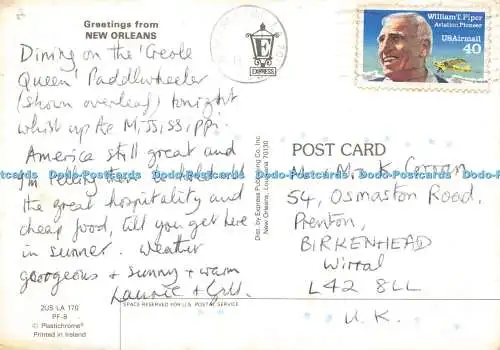 Greetings from
NEW ORLEANS
Dining on the 'Creole
Queen' Paddlewheeler
(shown overleaf) tonight
whist up the M,iss,iss,ippi.
America still great and
I'm telling them to hold all
the great hospitality and
cheap food, till you get here
in summer. Weather
goorgeous + sunny + warm
Laurie + Gill.
2US LA 170
PF-8
© Plastichrome®
Printed in Ireland
SPACE RESERVED FOR U.S. POSTAL SERVICE
Dist. by Express Publishing Co. Inc.
New Orleans, Louisiana 70130
E
EXPRESS
William T. Piper
Aviation Pioneer
USAirmail
40
POST CARD
Mr + Mrs K
54, Osmaston Road,
Prenton,
BIRKENHEAD
Wirral
L42 8LL
U.K.
Dodo-Postcards Dodo-Postcards Dodo-Postcards Dodo-Postcards Dodo-Postcards